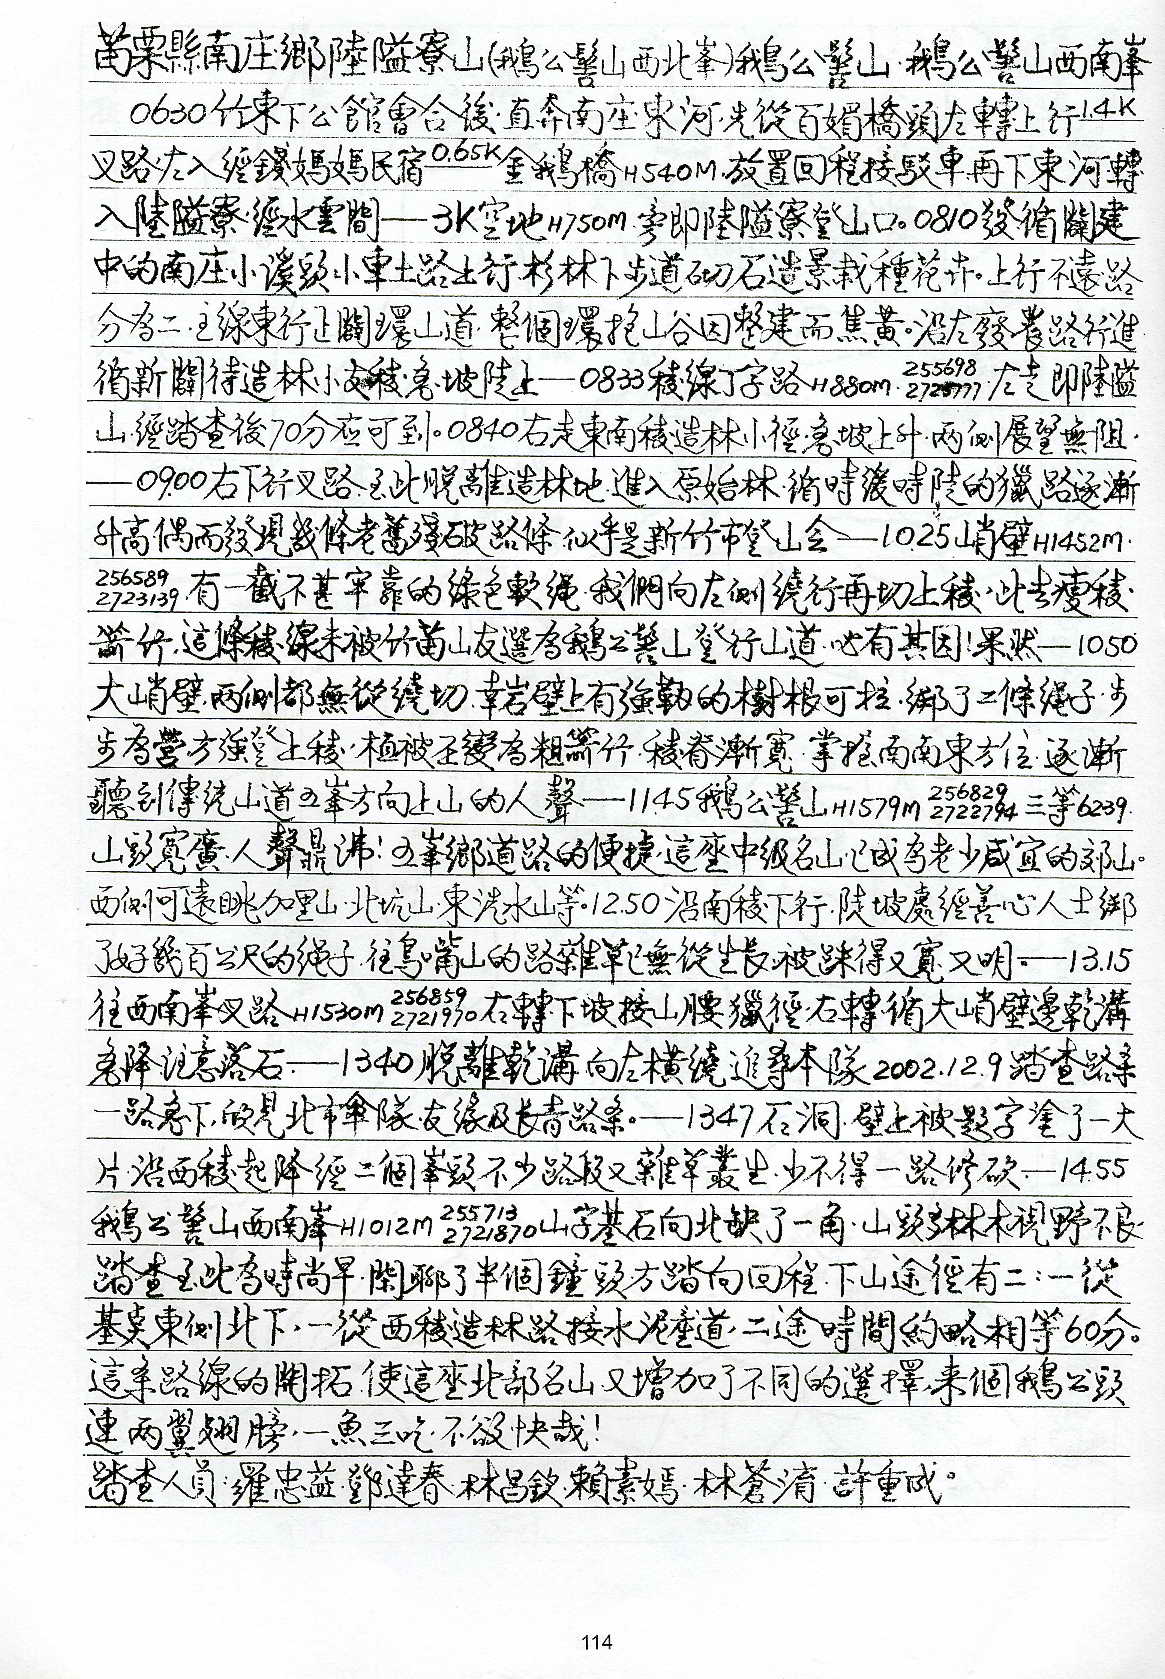 苗栗縣南庄鄉陸隘寮山(鵝公髻山西北峯)鵝公髻山·鵝公髻山西南峯
0630竹東下公館會合後·直奔南庄·東河·先從百媚橋頭左轉上行1.4K
叉路·左入經錢媽媽民宿0.65K金鵝橋H540M·放置回程接駁車·再下東河轉
入陸隘寮·經水雲間—3K空地H750M·旁即陸隘寮登山口。0810發·循闢建
中的南庄小溪頭小車土路上行·杉林下步道砌石造景栽種花卉。上行不遠路
分為二·主線東行正闢環山道·整個環抱山谷因整建而焦黃。沿左廢農路行進
循新闢待造林小支稜·急坡陡上—0833稜線丁字路H880M·255698 2723777·左走即陸隘
山·經踏查後70分应可到。0840右走東南稜造林小徑·急坡上升·兩側展望無阻·
—0900右下行叉路·至此脫離造林地·進入原始林·循時緩時陡的獵路逐漸
升高偶而發現幾條老舊殘破路條·似乎是新竹市登山会—1025峭壁H1452M·
256589 2723139·有一截不甚牢靠的綠色軟繩·我們向左側繞行再切上稜·此去瘦稜·
箭竹·這條稜線未被竹苗山友選為鵝公髻山登行山道·必有其因!果然—1050
大峭壁·兩側都無從繞切·幸岩壁上有強勒的樹根可拉·綁了二條繩子·步
步為營·方強登上稜·植被丕變為粗箭竹·稜脊漸寬·掌握南南東方位·逐漸
聽到傳統山道五峯方向上山的人聲—1145鵝公髻山H1579M 256829 2722794 三等6239·
山頭寬廣·人聲鼎沸!五峯鄉道路的便捷·這座中級名山已成為老少咸宜的郊山。
西側可遠眺加里山·北坑山·東洗水山等·1250沿南稜下行·陡坡處經善心人士綁
了好幾百公尺的繩子·往鳥嘴山的路雜草已無從生長·被踩得又寬又明。—1315
往西南峯叉路H1530M 256859 2721970 右轉下坡接山腰獵徑·右轉循大峭壁邊乾溝
急降注意落石·—1340脫離乾溝·向左橫繞·追尋本隊2002.12.9踏查路条
一路急下·欣見北市傘隊·友緣及長青路条。—1347石洞·壁上被題字塗了一大
片·沿西稜起降經二個峯頭不少路段又雜草叢生·少不得一路修砍·—1455
鵝公髻山西南峯H1012M 255713 2721870 山字基石向北缺了一角·山頭多林木視野不良·
踏查至此為時尚早·閑聊了半個鐘頭方踏向回程·下山途徑有二:一從
基點東側北下·一從西稜造林路接水泥產道·二途時間約略相等60分。
這条路線的開拓·使這座北部名山又增加了不同的選擇·来個鵝公頭
連兩翼翅膀·一魚三吃·不欲快哉!
踏查人員:羅忠益·鄧達春·林昌欽·賴素嫣·林蒼淯·許重成。
114